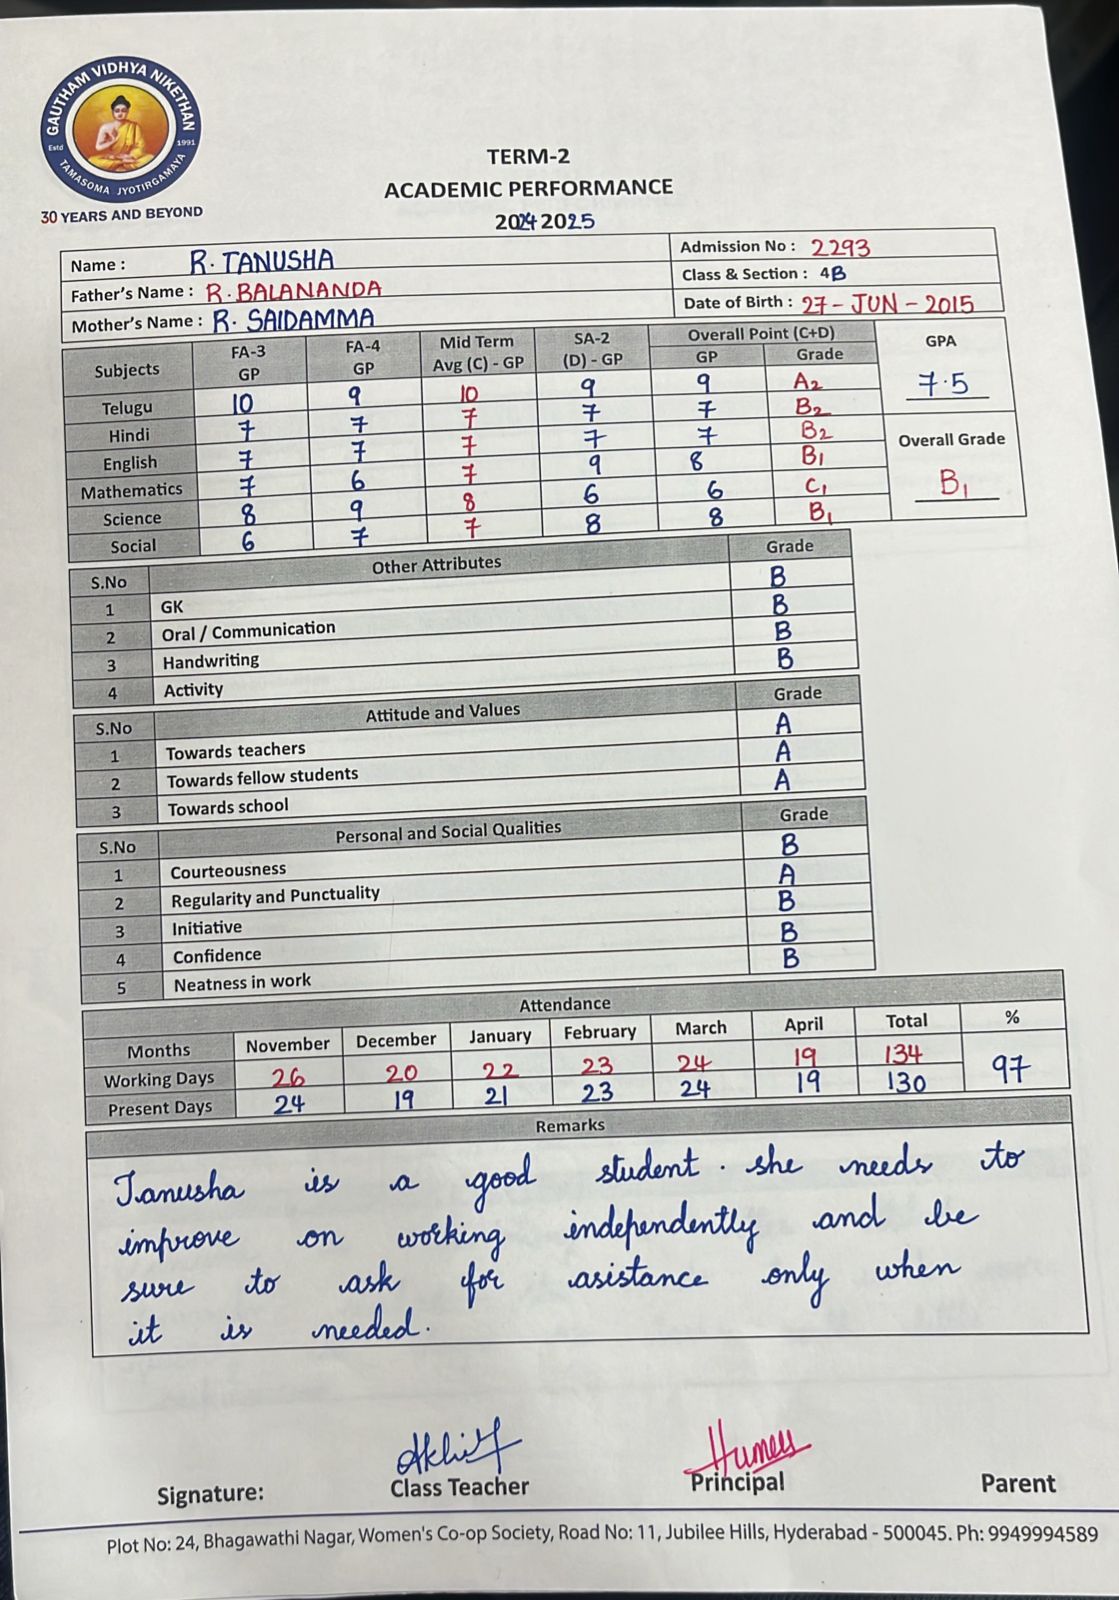 GAUTHAM VIDHYA NIKETHAN
Estd 1991
TAMASOMA JYOTIRGAMAYA
30 YEARS AND BEYOND
TERM-2
ACADEMIC PERFORMANCE
2024 2025
Name : R. TANUSHA Admission No : 2293
Father's Name : R. BALANANDA Class & Section : 4B
Mother's Name : R. SAIDAMMA Date of Birth : 27-JUN-2015
Subjects FA-3 GP FA-4 GP Mid Term Avg (C) - GP SA-2 (D) - GP Overall Point (C+D) GP Grade GPA
Telugu 10 9 10 9 9 A2 7.5
Hindi 7 7 7 7 7 B2
English 7 7 7 7 7 B2 Overall Grade
Mathematics 7 6 7 9 8 B1 B1
Science 8 9 8 6 6 C1
Social 6 7 7 8 8 B1
S.No Other Attributes Grade
1 GK B
2 Oral / Communication B
3 Handwriting B
4 Activity B
S.No Attitude and Values Grade
1 Towards teachers A
2 Towards fellow students A
3 Towards school A
S.No Personal and Social Qualities Grade
1 Courteousness B
2 Regularity and Punctuality A
3 Initiative B
4 Confidence B
5 Neatness in work B
Attendance
Months November December January February March April Total %
Working Days 26 20 22 23 24 19 134 97
Present Days 24 19 21 23 24 19 130
Remarks
Tanusha is a good student. she needs to
improve on working independently and be
sure to ask for asistance only when
it is needed.
Signature: Class Teacher Principal Parent
Plot No: 24, Bhagawathi Nagar, Women's Co-op Society, Road No: 11, Jubilee Hills, Hyderabad - 500045. Ph: 9949994589